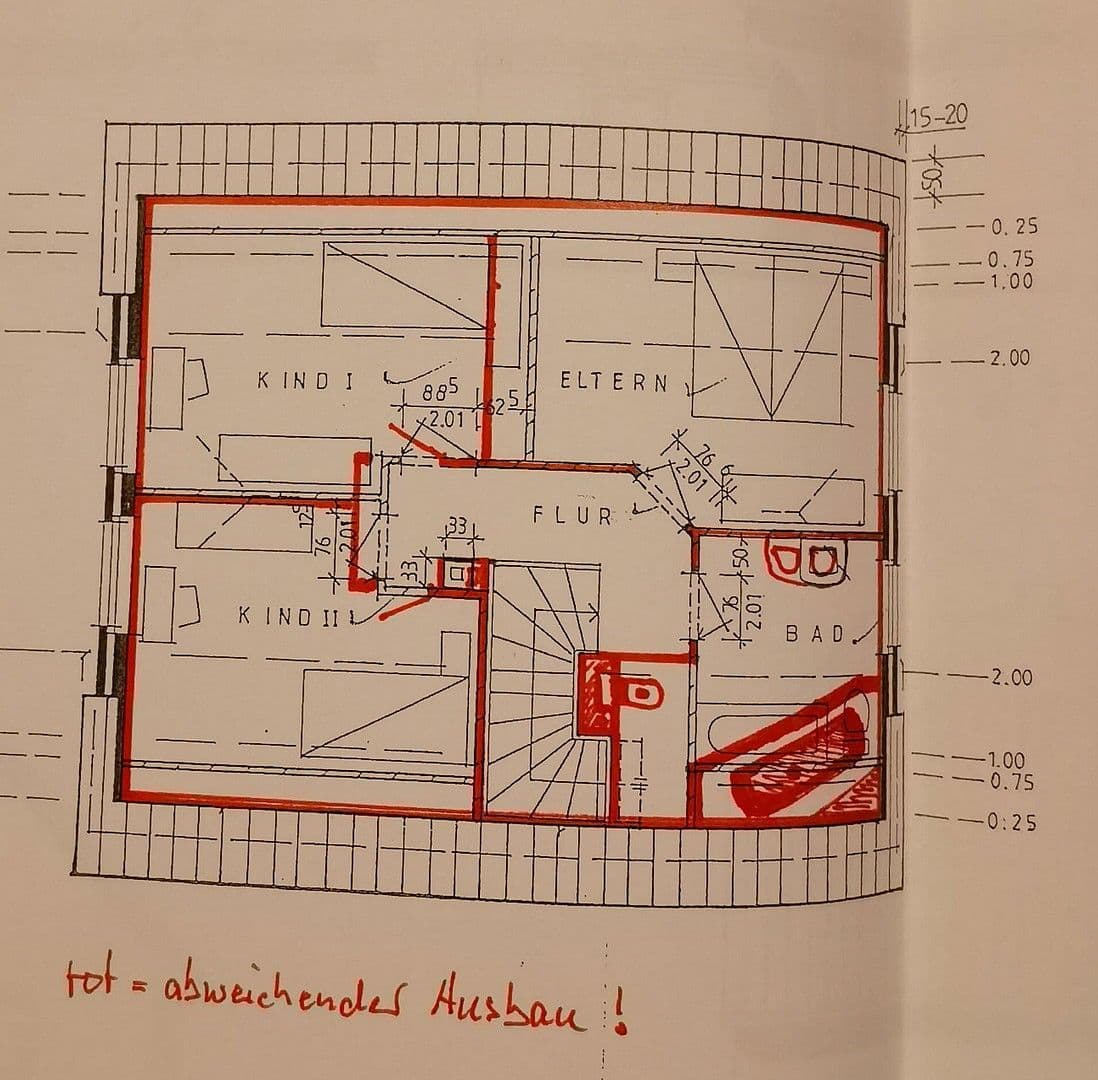 15-20
50
0.25
0.75
1.00
2.00
KIND I
88⁵
2.01
62⁵
ELTERN
76
2.01
FLUR
12⁵
76
2.01
33
33
50
76
2.01
KIND II
BAD
2.00
1.00
0.75
0:25
rot = abweichender Ausbau !